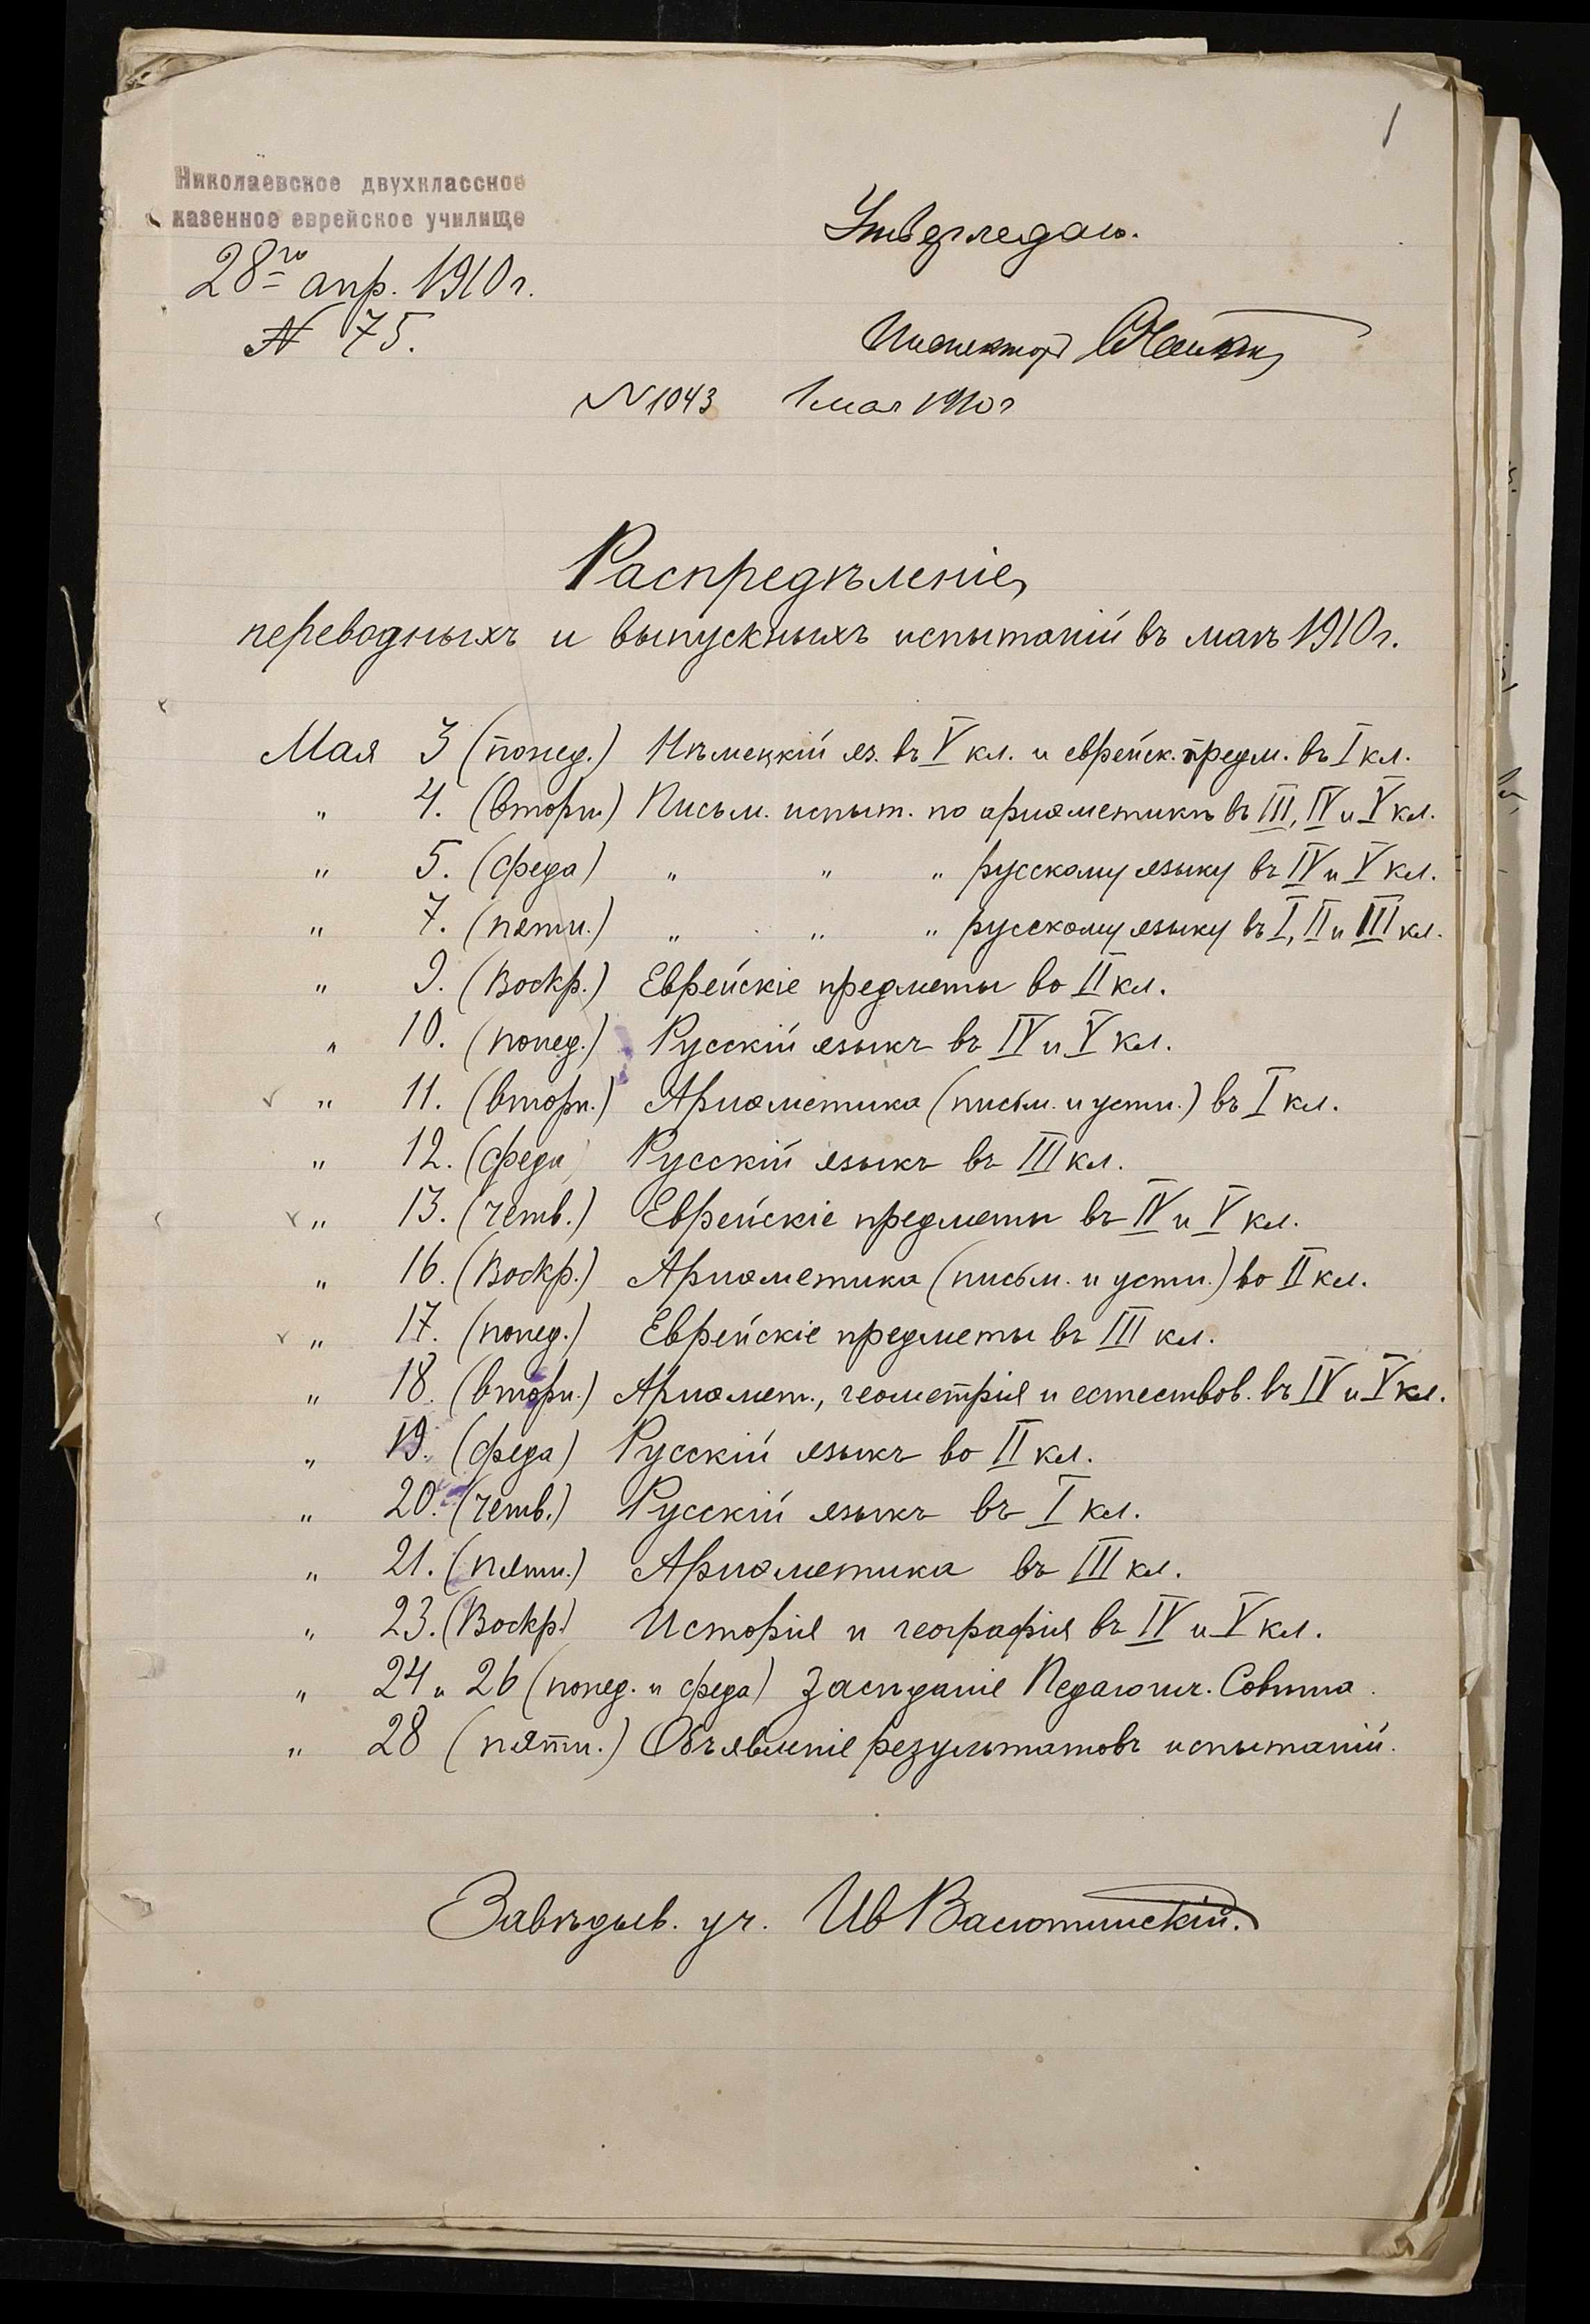 1
Николаевское двухклассное
казенное еврейское училище
28го апр. 1910 г.
№ 75.
Утверждаю.
Инспекторъ
№ 1043 1 мая 1910 г
Распредѣленіе
переводныхъ и выпускныхъ испытаній въ маѣ 1910 г.
Мая 3 (понед.) Нѣмецкій яз. въ V кл. и еврейск. предм. въ I кл.
" 4. (вторн.) Письм. испыт. по ариѳметикѣ въ III, IV и V кл.
" 5. (среда) " " " русскому языку въ IV и V кл.
" 7. (пятн.) " " " русскому языку въ I, II и III кл.
" 9. (Воскр.) Еврейскіе предметы во II кл.
" 10. (понед.) Русскій языкъ въ IV и V кл.
" 11. (вторн.) Ариѳметика (письм. и устн.) въ I кл.
" 12. (среда) Русскій языкъ въ III кл.
" 13. (четв.) Еврейскіе предметы въ IV и V кл.
" 16. (Воскр.) Ариѳметика (письм. и устн.) во II кл.
" 17. (понед.) Еврейскіе предметы въ III кл.
" 18. (вторн.) Ариѳмет., геометрія и естествов. въ IV и V кл.
" 19. (среда) Русскій языкъ во II кл.
" 20. (четв.) Русскій языкъ въ I кл.
" 21. (пятн.) Ариѳметика въ III кл.
" 23. (Воскр.) Исторія и географія въ IV и V кл.
" 24 и 26 (понед. и среда) Засѣданіе Педагогич. Совѣта.
" 28 (пятн.) Объявленіе результатовъ испытаній.
Завѣдыв. уч. Ив Васютинскій.